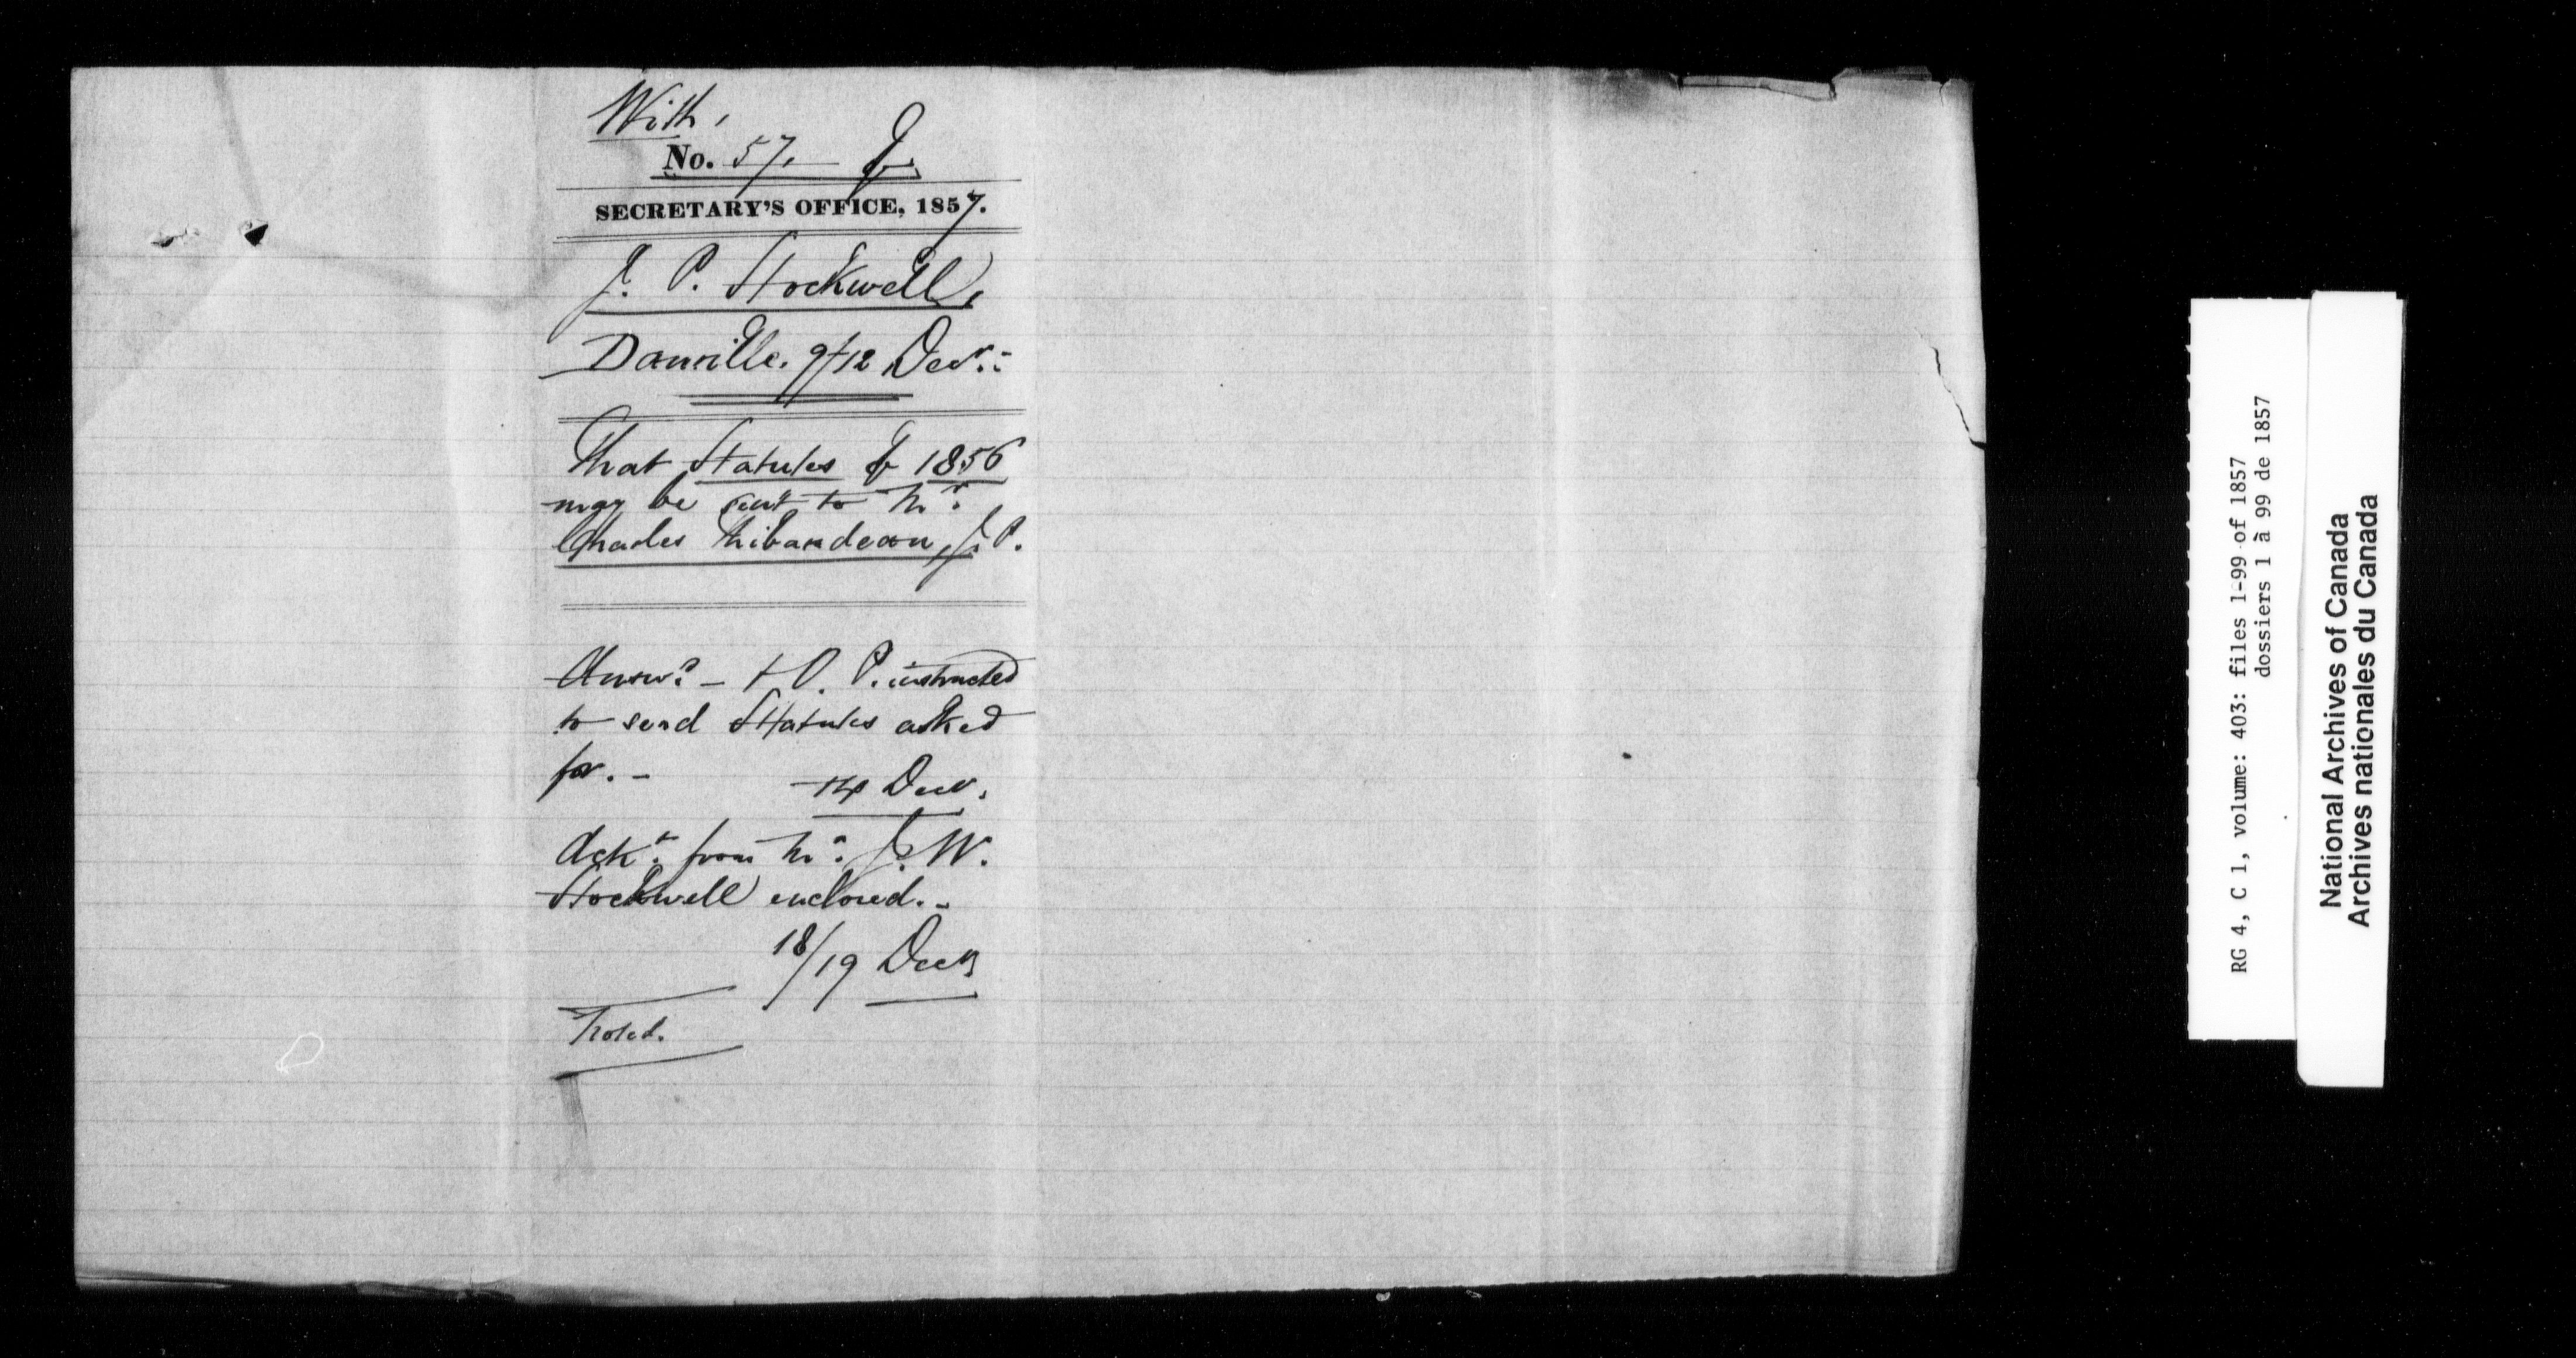 With,
No. 57.
SECRETARY'S OFFICE, 1857.
J. P. Stockwell,
Danville. 9/12 Decr.
That Statutes of 1856
may be sent to Mr.
Charles Thibaudeau, J. P.
Answd. - + Q. P. instructed
to send Statutes asked
for. -
14 Decr.
Ackt. from Mr. J. W.
Stockwell enclosed. -
18/19 Decr
Noted.
RG 4, C 1, volume: 403: files 1-99 of 1857
dossiers 1 à 99 de 1857
National Archives of Canada
Archives nationales du Canada